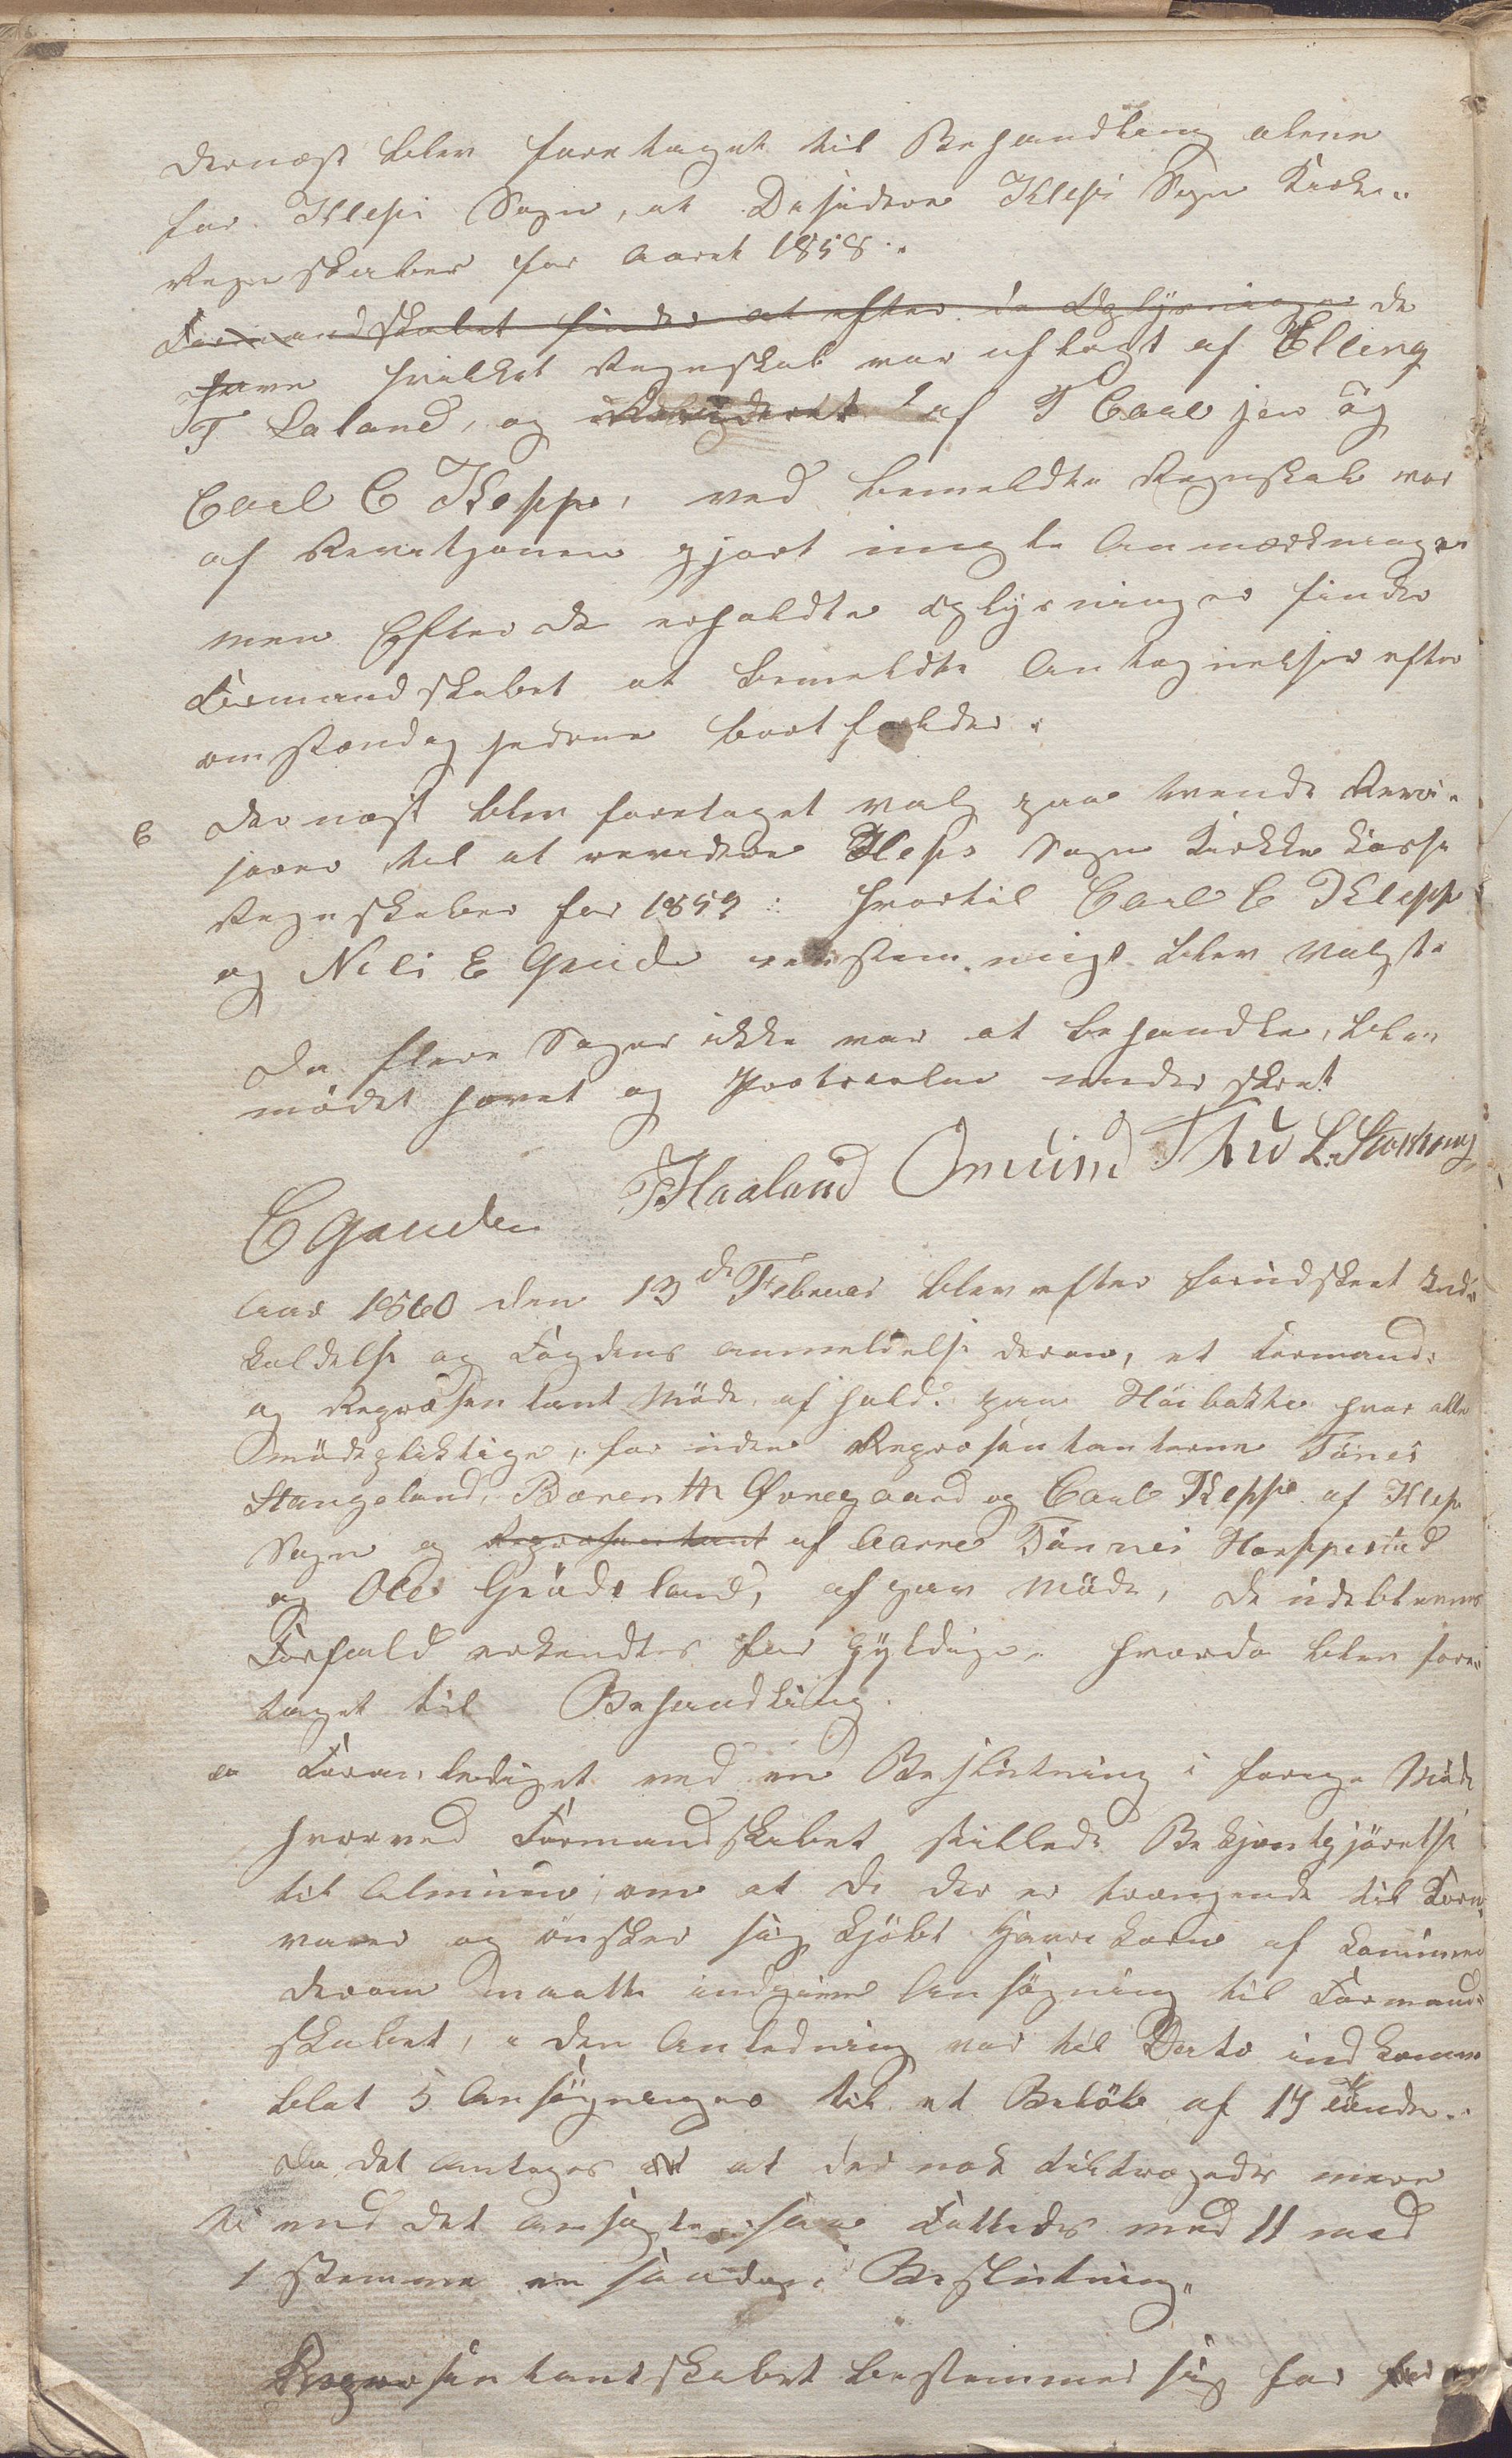 Dernæst blev foretaget til Behandling alene
for Klepi Sogn, at Desidere Klepi Sogn Kirke„
Regnskaber for Aaret 1858.
Formandskabet finder at efter de Oplysninger de
have hvilket Regnskab var aflagt af Elling
T Laland, og Revideret af T Carlsen og
Carl C Klepp, ved bemeldte Regnskab var
af Revitzonen gjort nogle Anmærkninger
men Efter de erholdte Oplysninger finder
Formandskabet at bemeldte Antegnelser efter
omstændighederne bortfalder.
6 Dernæst blev foretaget valg paa tvende Revi„
sorer til at revidere Kleps Sogn Kirkke kasse
Regnskaber for 1859: hvortil Carl C Klepp
og Nils E Grude eenstemmigt blev Valgte
Da flere Sager ikke var at behandle, blev
mødet hævet og Protocolen underskret
THaaland Omund Thu L. Storhoug
E Gauden
Aar 1860 den 13de Februar blev efter forudskeet Ind„
kaldelse og Fogdens anmeldelse derom, et Formand:
og Repræsentant Møde afhold. paa Høibakke hvor alle
mødepliktige, for uden Repræsentanterne Tønes
Stangeland, Barenth Øvregaard og Carl Kleppe af Klep
Sogn og Repræsentant af Aarre Tønnes Hærpestad
og Ole Grødeland, afgav Møde, de udeblevnes
Forfald erkendtes for Gyldige. hvorda blev fore„
taget til Behandling.
a Foranlediget ved en Beslutning i forrige Møde
hvorved Formandskabet stillede Bekjentgjørelse
til Alminu, om at de der er trængende til Korn„
varer og ønsker sig kjøbt Havrekorn af Communen
derom maatte indgive Ansøgning til Formand„
skabet, i den Anledning var til Dato indkomme
blot 5 Ansøgninger til et Beløb af 14 tønder.
Da det antages at at der nok tiltrægedes mere
end det ansøgte, saa Fattedes med 11 mod
1 stemme en saadan Beslutning„
Repræsentantskabet bestemmer sig for